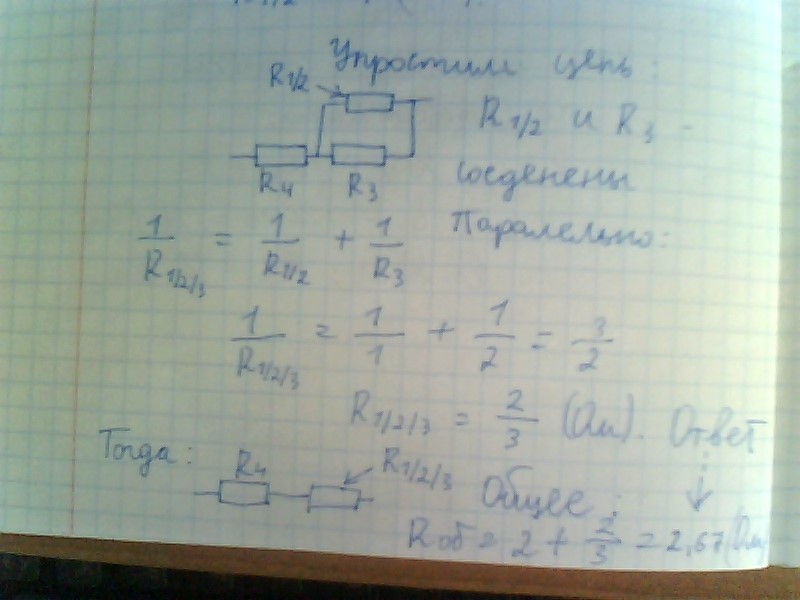 Упростим цепь:
R1/2
R1/2 и R3 -
R4 R3
соеденены
Паралельно:
1/R1/2/3 = 1/R1/2 + 1/R3
1/R1/2/3 = 1/1 + 1/2 = 3/2
R1/2/3 = 2/3 (Ом). Ответ
Тогда:
R4 R1/2/3
Общее:
Rоб = 2 + 2/3 = 2,67 (Ом)